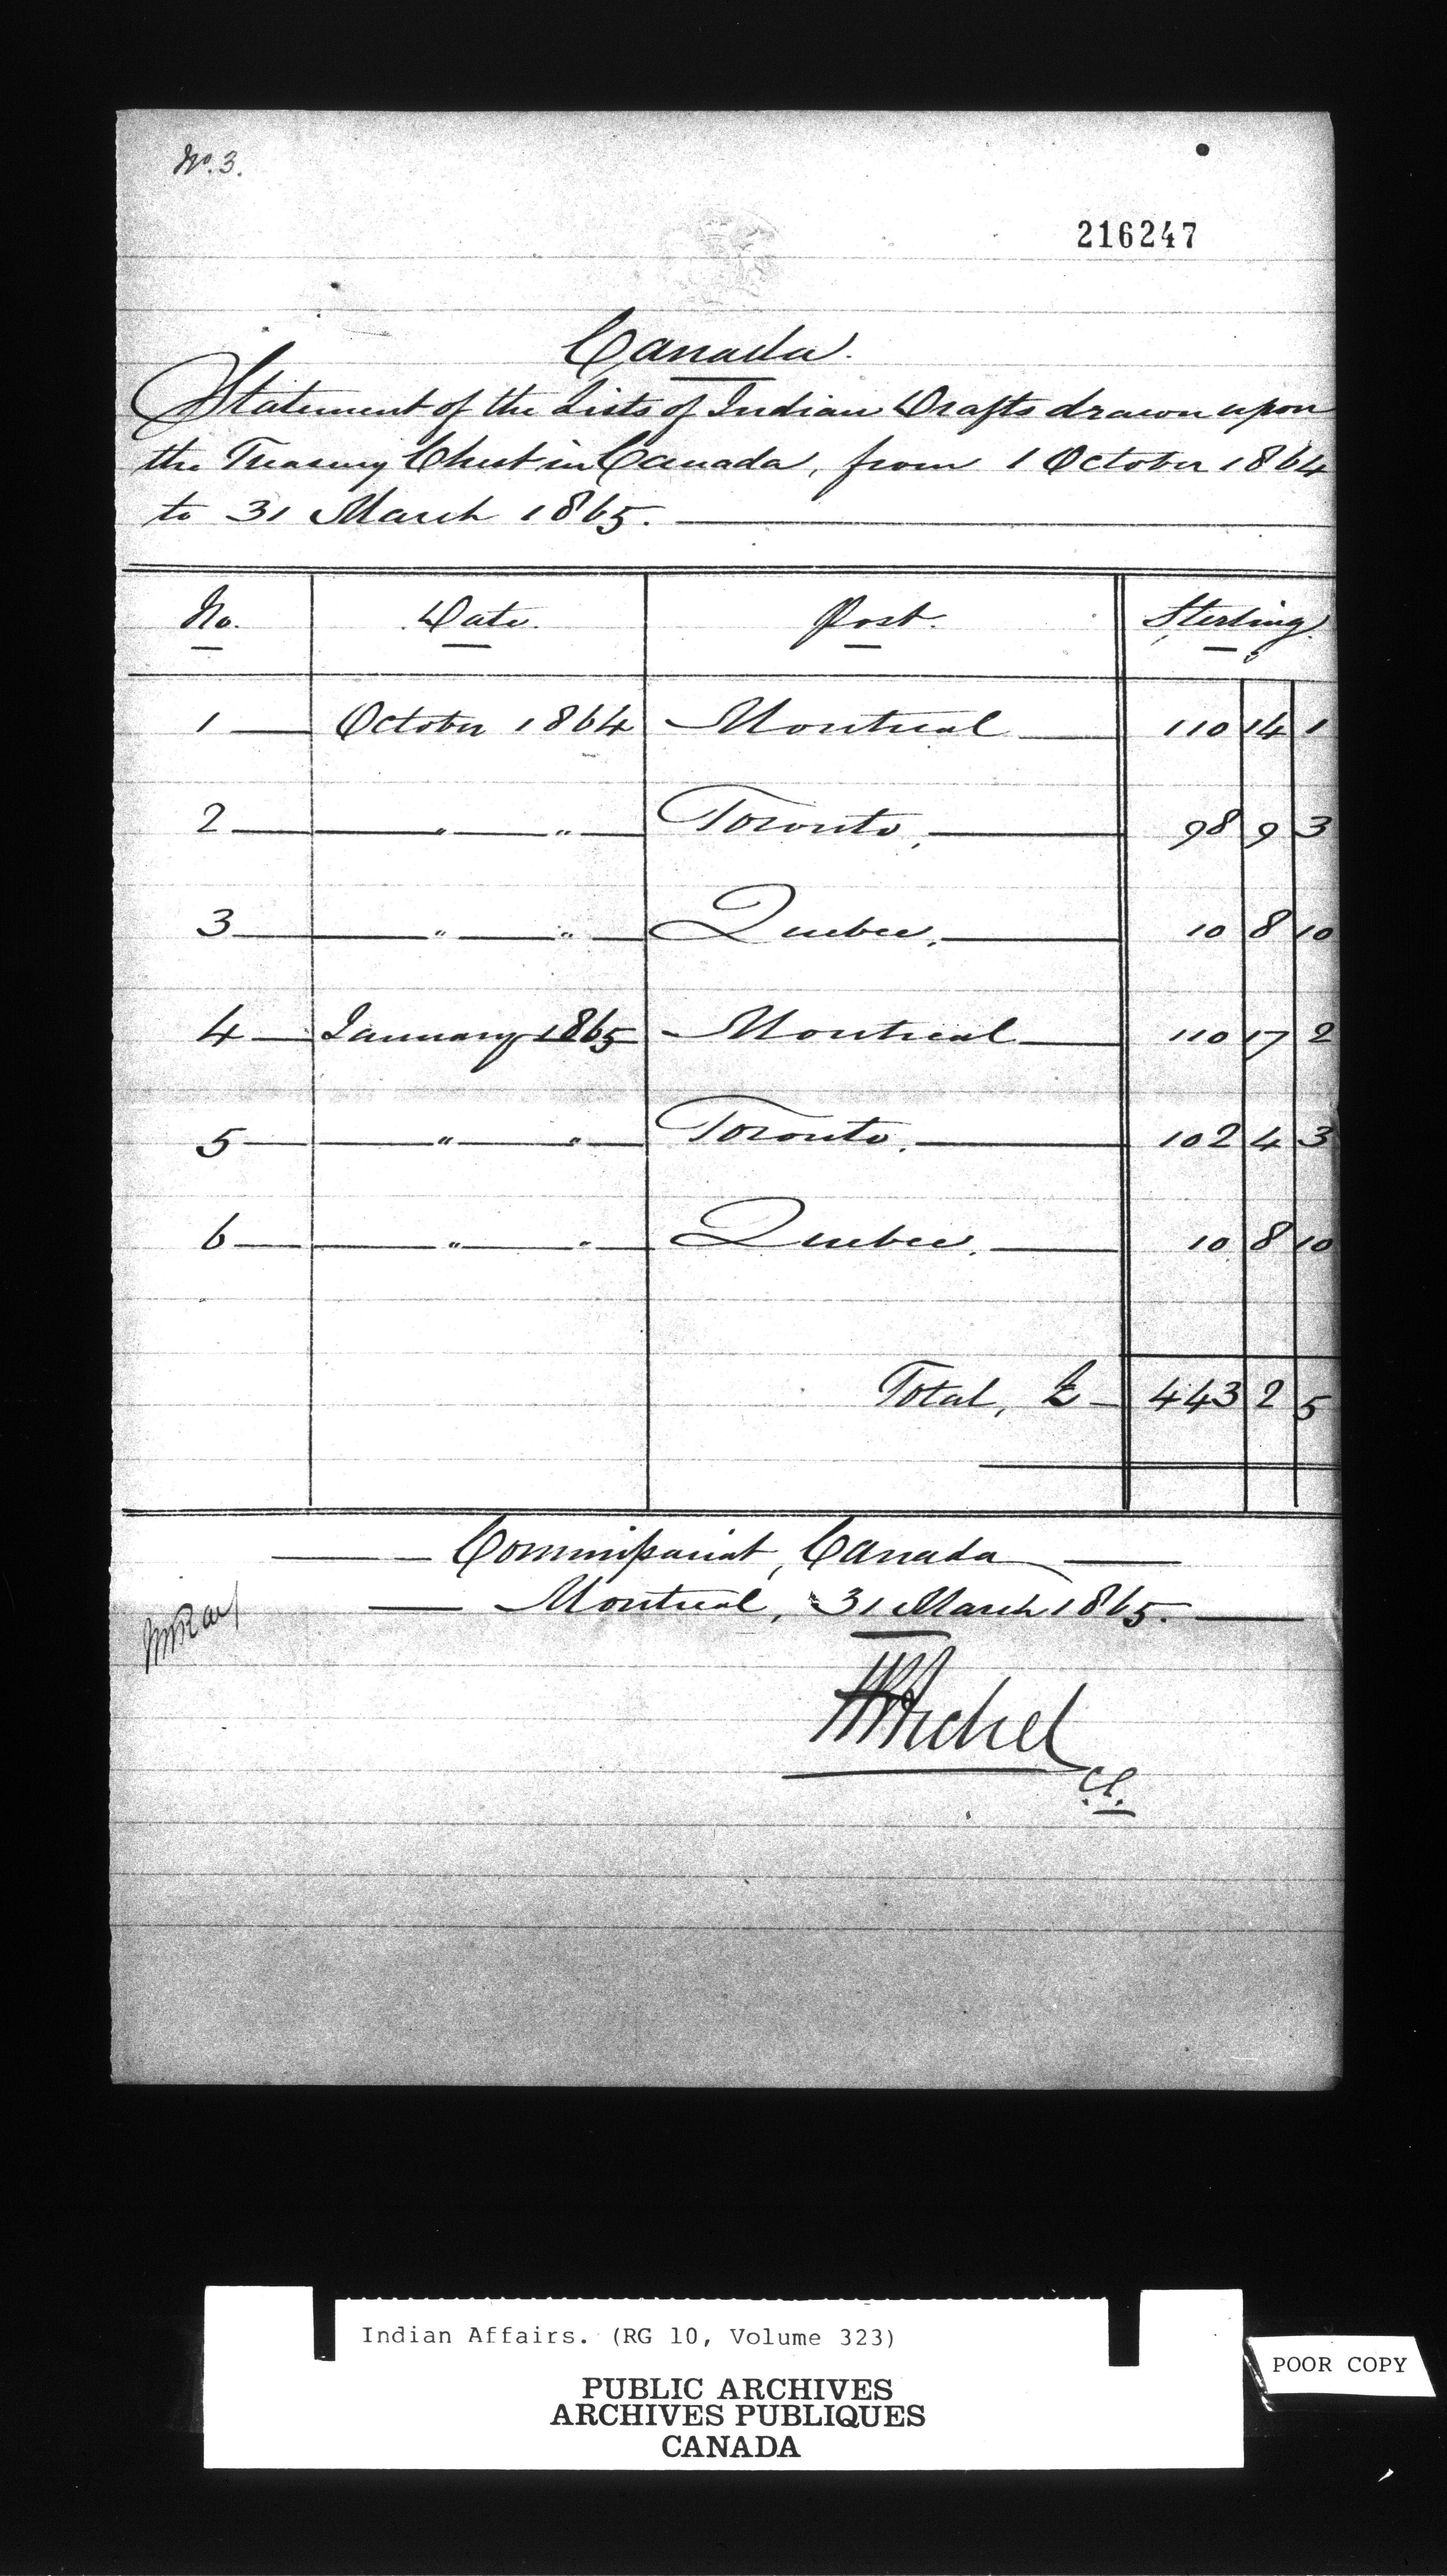 No. 3.
216247
Canada.
Statement of the Lists of Indian Drafts drawn upon
the Treasury Chest in Canada, from 1 October 1864
to 31 March 1865.
No. Date. Post. Sterling.
1 October 1864 Montreal 110 14 1
2 " " Toronto, 98 9 3
3 " " Quebec, 10 8 10
4 January 1865 Montreal 110 17 2
5 " " Toronto, 102 4 3
6 " " Quebec, 10 8 10
Total, £ 443 2 5
Commissariat, Canada
Montreal, 31 March 1865.
C.G.
Indian Affairs. (RG 10, Volume 323)
PUBLIC ARCHIVES
ARCHIVES PUBLIQUES
CANADA
POOR COPY